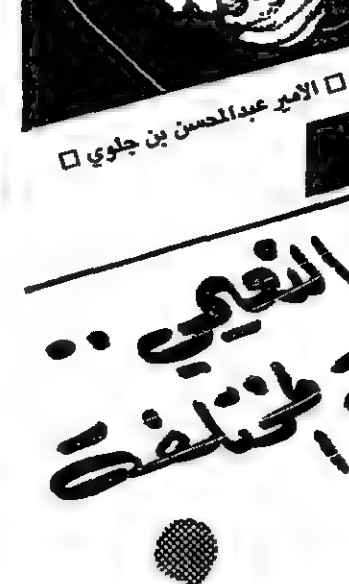 □ الأمير عبدالمحسن بن جلوي □
النعيمي ..
المختلفة